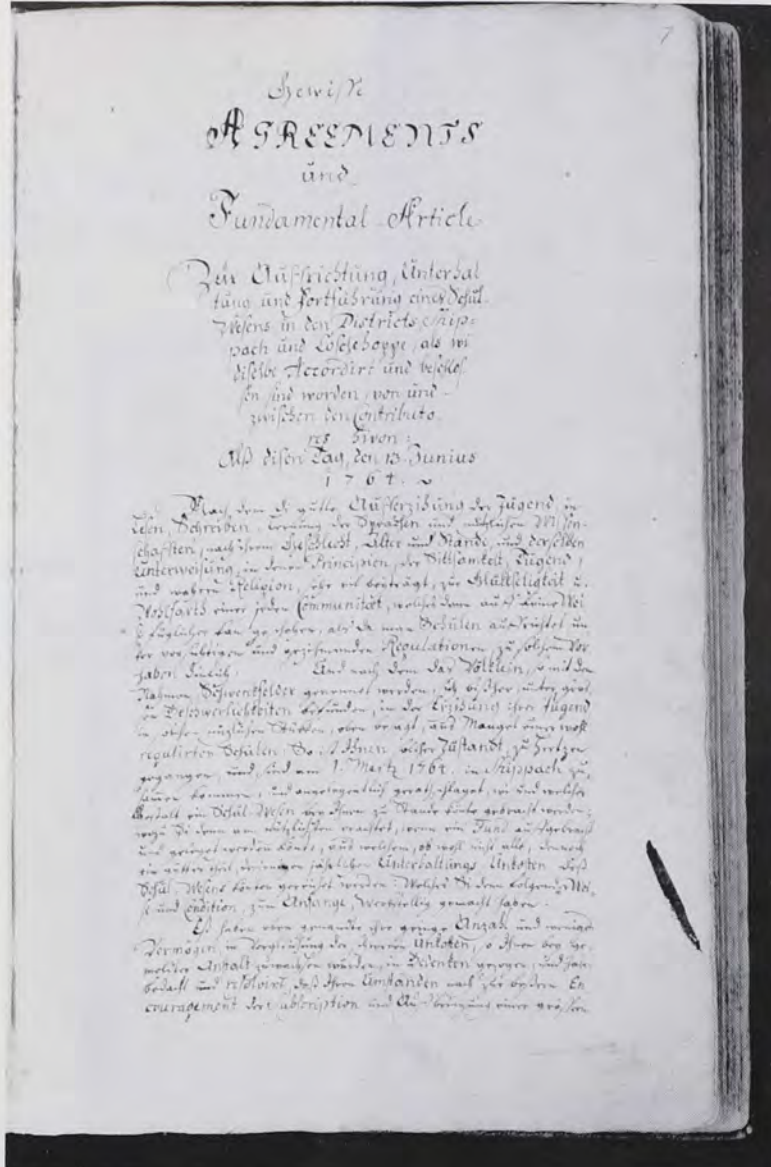 7
Gewisse
AGREEMENTS
und
Fundamental Article
Zur Auffrichtung, Unterhal
tung und Fortführung eines Schul-
Wesens in den Districts Skip-
pach und Goschehoppe, als wi
diselbe Accordirt und beschlos
sen sind worden, von und
zwischen den Contributo-
res hivon:
Alß disen Tag, den 13. Junius
1764.
Nach dem di gutte Aufferzihung der Jugend, in
Lesen, Schreiben, Lernung der Sprachen und nützlichen Wissen-
schafften, nach ihrem Geschlecht, Alter und Stande, und derselben
Unterweisung, in denen Principien, der Sittsamkeit, Tugend,
und wahren Religion, sehr vil beiträgt, zur Glükseligkeit u.
Wohlfarth einer jeden Communität, welches dann auf keine Wei
se füglicher kan geschehen, als da man Schulen auffrichtet un
ter vorsichtigen und geziemenden Regulationen, zu solchem Vor
haben dinlich. Und nach dem das Völklein, so mit dem
Nahmen Schwenkfelder genennet werden, sich bißher, unter gros
sen Beschwerlichkeiten befunden, in der Erzihung ihrer Jugend
in, obigen nüzlichen Stükken, oben besagt, aus Mangel einer wohl
regulirten Schulen, So ist Ihnen solcher Zustandt, zu Hertzen
gegangen, und, sind am 1. Mertz 1764. in Skippach zu-
sammen kommen, und angelegentlich gerathschlaget, wi und welcher
Gestalt ein Schul-Wesen bey Ihnen zu Stande könte gebracht werden;
wozu Si denn am nützlichsten erachtet, wenn ein Fund auffgebracht
und gesezet werden könte, aus welchem, ob wohl nicht alle, dennoch
ein gutter theil derjenigen jährlichen Unterhaltungs-Unkosten, diß
Schul-Wesens könten gereichet werden. Welches Si denn folgende Wei-
se und Condition, zum Anfange, werkstellig gemacht haben.
Eß haben oben genandte ihre geringe Anzahl und weniges
Vermögen, in Vergleichung der schweren Unkosten, so Ihnen bey ge-
meldter Anstalt zuwachsen würden, in Bedenken gezogen, und für
bedacht und resolvirt, daß Ihren Umständen nach zur bessern En
couragement der Subscription und Aufbringung einer grössern